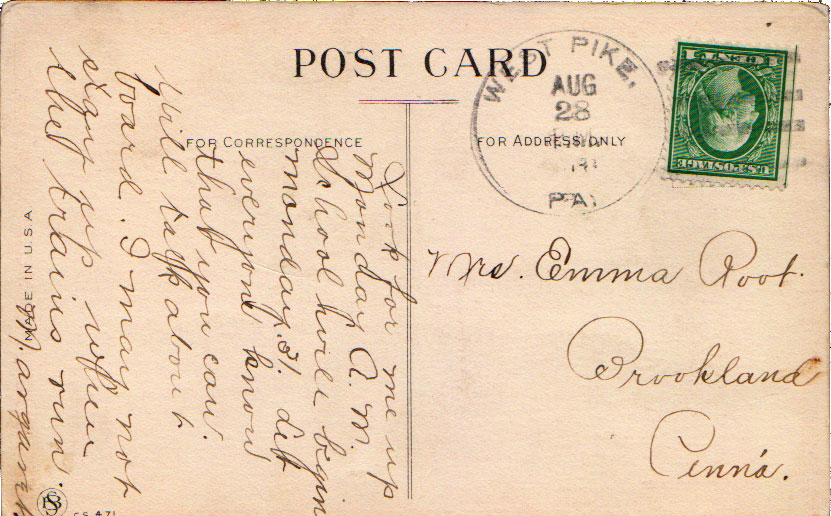 POST CARD
FOR CORRESPONDENCE
FOR ADDRESS ONLY
WEST PIKE,
AUG
28
PA.
U.S. POSTAGE
1 CENT 1
Mrs. Emma Root.
Brookland
Penna.
Look for me up
Monday A. M.
School will begin
monday 31. Let
everyone know
that you can.
Will talk about
board. I may not
up when
that trains run.
Margaret
MADE IN U.S.A
CS 471